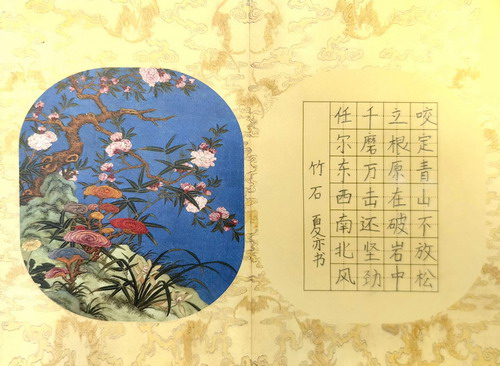 咬定青山不放松
立根原在破岩中
千磨万击还坚劲
任尔东西南北风
竹石 夏亦书